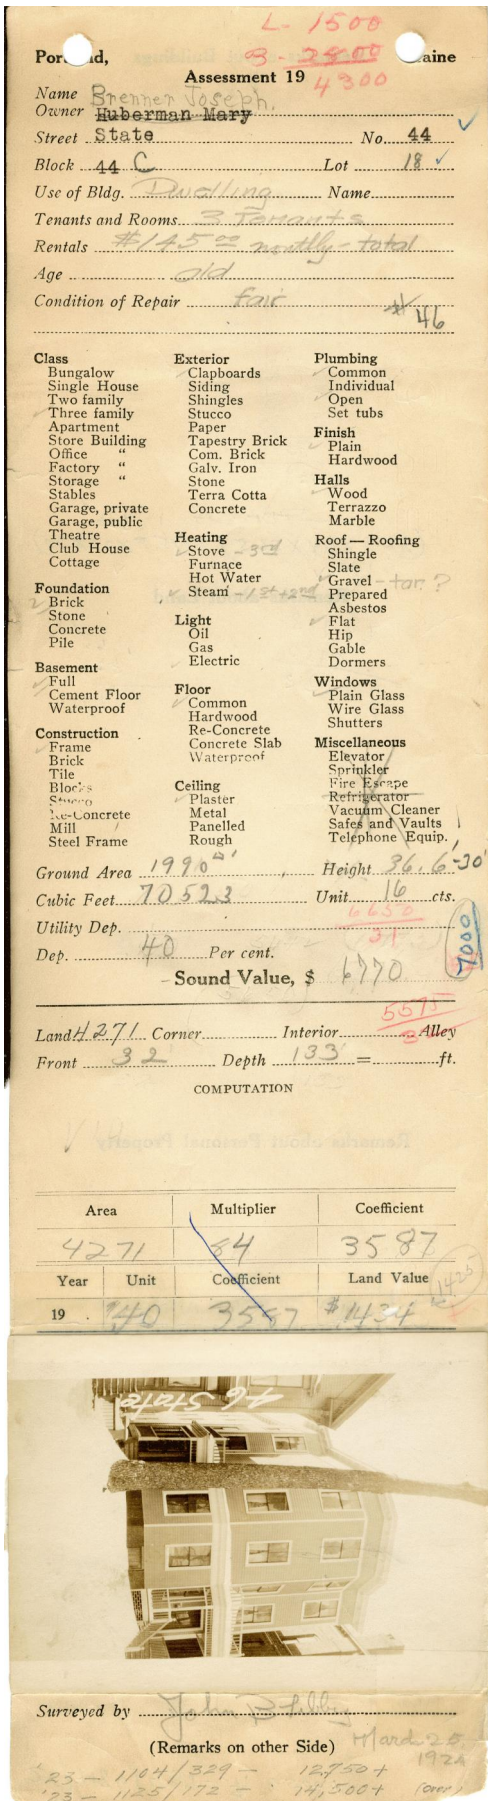 L - 1500
Portland, B - 2800 Maine
Assessment 19 4300
Name Brenner Joseph.
Owner Huberman Mary
Street State No. 44
Block 44 C Lot 18
Use of Bldg. Dwelling Name
Tenants and Rooms 3 Tenants
Rentals $145.00 monthly - total
Age old
Condition of Repair fair
46
Class
Bungalow
Single House
Two family
Three family
Apartment
Store Building
Office "
Factory "
Storage "
Stables
Garage, private
Garage, public
Theatre
Club House
Cottage
Foundation
Brick
Stone
Concrete
Pile
Basement
Full
Cement Floor
Waterproof
Construction
Frame
Brick
Tile
Blocks
Stucco
Re-Concrete
Mill
Steel Frame
Exterior
Clapboards
Siding
Shingles
Stucco
Paper
Tapestry Brick
Com. Brick
Galv. Iron
Stone
Terra Cotta
Concrete
Heating
Stove - 3rd
Furnace
Hot Water
Steam - 1st + 2nd
Light
Oil
Gas
Electric
Floor
Common
Hardwood
Re-Concrete
Concrete Slab
Waterproof
Ceiling
Plaster
Metal
Panelled
Rough
Plumbing
Common
Individual
Open
Set tubs
Finish
Plain
Hardwood
Halls
Wood
Terrazzo
Marble
Roof — Roofing
Shingle
Slate
Gravel - tar?
Prepared
Asbestos
Flat
Hip
Gable
Dormers
Windows
Plain Glass
Wire Glass
Shutters
Miscellaneous
Elevator
Sprinkler
Fire Escape
Refrigerator
Vacuum Cleaner
Safes and Vaults
Telephone Equip.
Ground Area 1990 Height 36.6'-30'
Cubic Feet 70523 Unit 16 cts.
Utility Dep. 6650
Dep. 40 Per cent. 7000
Sound Value, $ 6770
5575
Land 4271 Corner Interior Alley
Front 32' Depth 133' = ft.
COMPUTATION
Area Multiplier Coefficient
4271 84 3587
Year Unit Coefficient Land Value
1425
19 40 3587 $1434
46 State.
Surveyed by John B Libby
(Remarks on other Side) March 25
1924
'23 - 1104/329 - 12,750+
'23 - 1125/172 - 14,500+ (over)